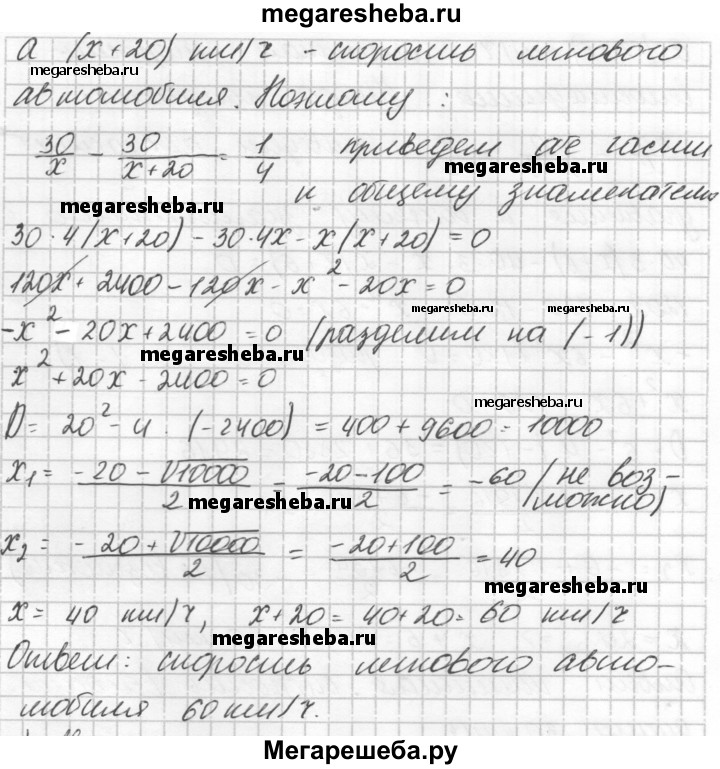 megaresheba.ru
а (x+20) км/ч - скорость легкового
megaresheba.ru
автомобиля. Поэтому :
30/x - 30/(x+20) = 1/4 приведем обе части
megaresheba.ru
к общему знаменателю
megaresheba.ru
30·4(x+20) - 30·4x - x(x+20) = 0
120x + 2400 - 120x - x² - 20x = 0
megaresheba.ru megaresheba.ru
-x² - 20x + 2400 = 0 (разделим на (-1))
megaresheba.ru
x² + 20x - 2400 = 0
megaresheba.ru
D = 20² - 4 · (-2400) = 400 + 9600 = 10000
x₁ = (-20 - √10000)/2 = (-20-100)/2 = -60 (не воз-
можно)
megaresheba.ru
x₂ = (-20 + √10000)/2 = (-20+100)/2 = 40
megaresheba.ru
x = 40 км/ч, x+20 = 40+20 = 60 км/ч
megaresheba.ru
Ответ: скорость легкового авто-
мобиля 60 км/ч.
Мегарешеба.ру